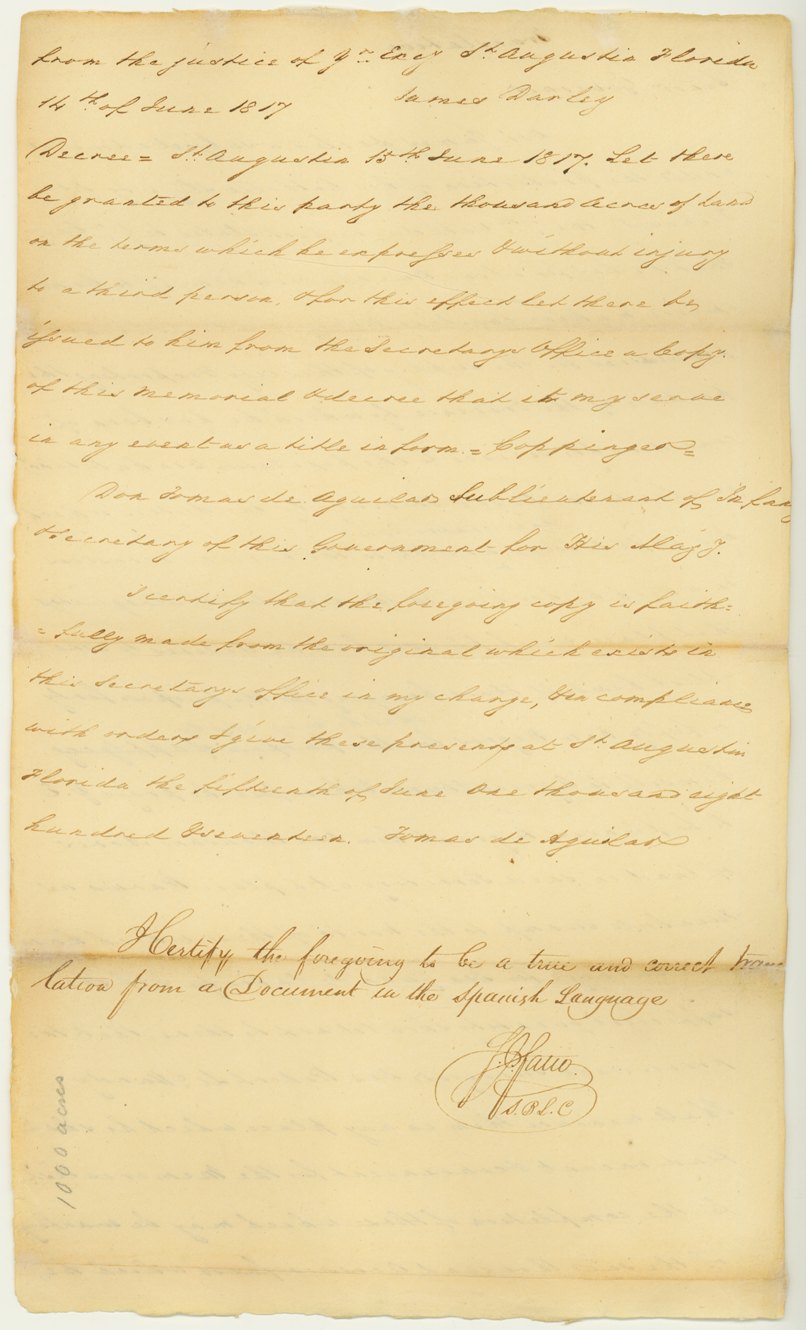 from the justice of Yr. Excy St. Augustin Florida
14th of June 1817 James Darley
Decree = St. Augustin 15th June 1817. Let there
be granted to this party the thousand acres of Land
on the terms which he expresses & without injury
to a third person, & for this effect let there be
issued to him from the Secretarys Office a Copy
of this memorial & decree that it my serve
in any event as a title in form. = Coppinger =
Don Tomas de Aguilar Sublieutenant of Infan
& Secretary of this Government for His Majy.
I certify that the foregoing copy is faith=
=fully made from the original which exists in
this Secretarys office in my charge, & in compliance
with orders I give these presents at St. Augustin
Florida the fifteenth of June One thousand eight
hundred & seventeen. Tomas de Aguilar
I Certify the foregoing to be a true and correct trans
lation from a Document in the Spanish Language
F. J. Fatio.
S.B.L.C.
1000 acres